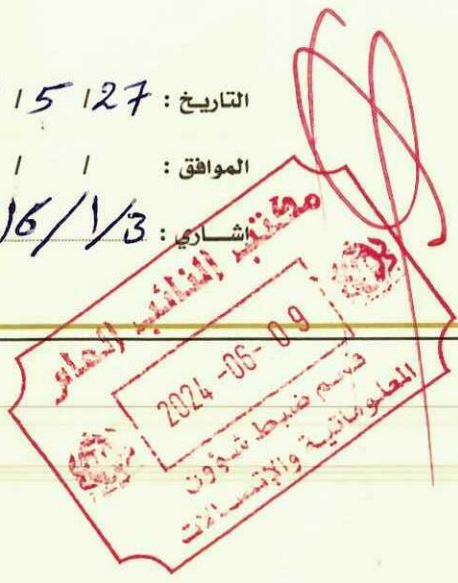 التاريخ : 27 / 5 /
الموافق : / /
إشاري : 3/1/16
مكتب النائب العام
2024 -06- 09
قسم ضبط شؤون
المعلوماتية والإتصالات